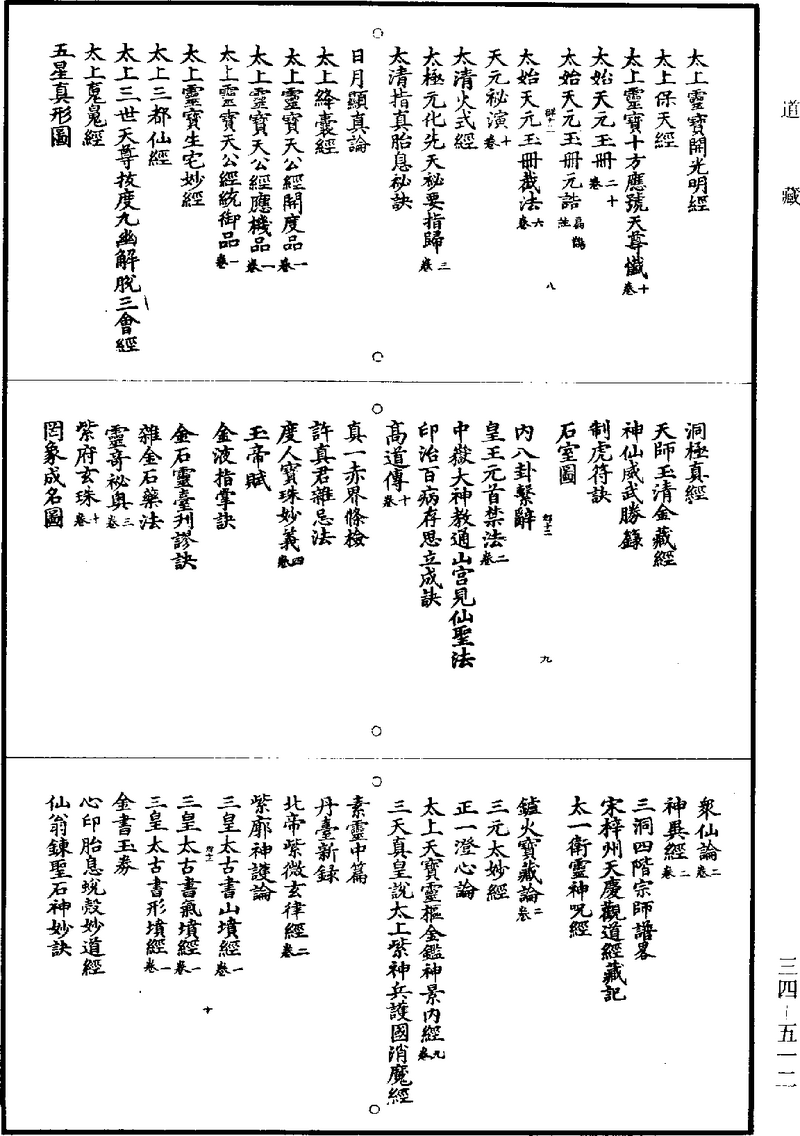 道藏
太上靈寶開光明經
太上保天經
太上靈寶十方應號天尊懺十卷
太始天元玉冊二十卷
太始天元玉冊元誥扁鵲注
八
太始天元玉冊截法六卷
天元祕演十卷
太清火式經
太極元化先天祕要指歸三卷
太清指真胎息祕訣
日月顯真論
太上絳囊經
太上靈寶天公經開度品一卷
太上靈寶天公經應機品一卷
太上靈寶天公經統御品一卷
太上靈寶生宅妙經
太上三都仙經
太上三世天尊拔度九幽解脫三會經
太上
五星真形圖
洞極真經
天師玉清金藏經
神仙威武勝籙
制虎符訣
石室圖
九
內八卦繫辭
皇王元首禁法二卷
中嶽大神教通山宮見仙聖法
印治百病存思立成訣
高道傳十卷
真一赤界條檢
許真君雜忌法
度人寶珠妙義四卷
玉帝賦
金液指掌訣
金石靈臺刊謬訣
雜金石藥法
靈奇祕奧三卷
紫府玄珠十卷
罔象成名圖
眾仙論二卷
神異經二卷
三洞四階宗師譜畧
宋梓州天慶觀道經藏記
太一衛靈神呪經
鑪火寶藏論二卷
三元太妙經
正一澄心論
太上天寶靈樞金鑑神景內經九卷
三天真皇說太上紫神兵護國消魔經
素靈中篇
丹臺新録
北帝紫微玄律經二卷
紫廓神護論
三皇太古書山墳經一卷
十
三皇太古書氣墳經一卷
三皇太古書形墳經一卷
金書玉券
心印胎息蛻殼妙道經
仙翁鍊聖石神妙訣
三四-五一二